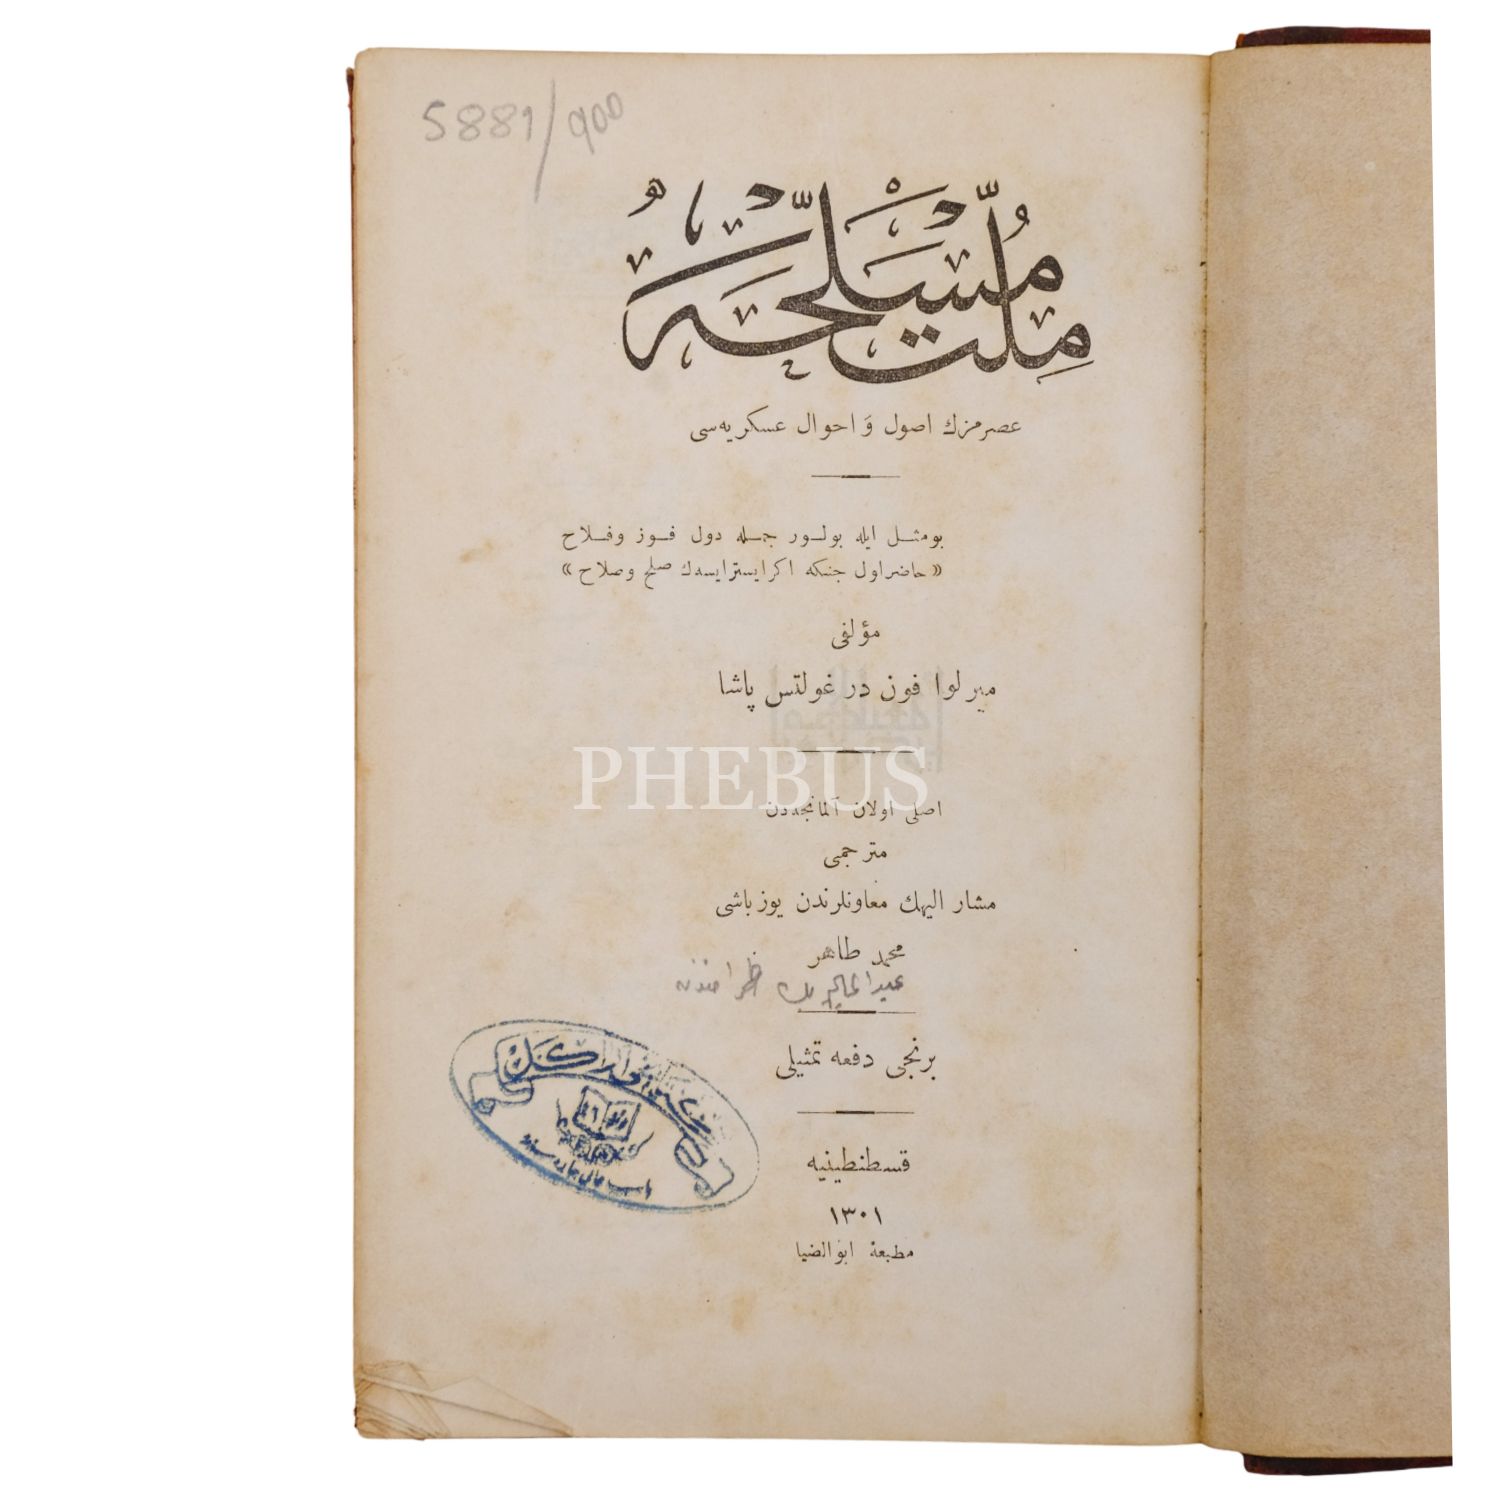 5881/900
ملت مسلحه
عصرمزك اصول و احوال عسكريه‌سى
بومثل ايله بولور جمله دول فوز وفلاح
«حاضر اول جنكه اكر ايستر ايسه‌ك صلح وصلاح»
مؤلفى
ميرلوا فون در غولتس پاشا
PHEBUS
اصلى اولان آلمانجه‌دن
مترجمى
مشار اليهك معاونلرندن يوزباشى
محمد طاهر
برنجى دفعه تمثيلى
قسطنطينيه
١٣٠١
مطبعهٔ ابوالضيا